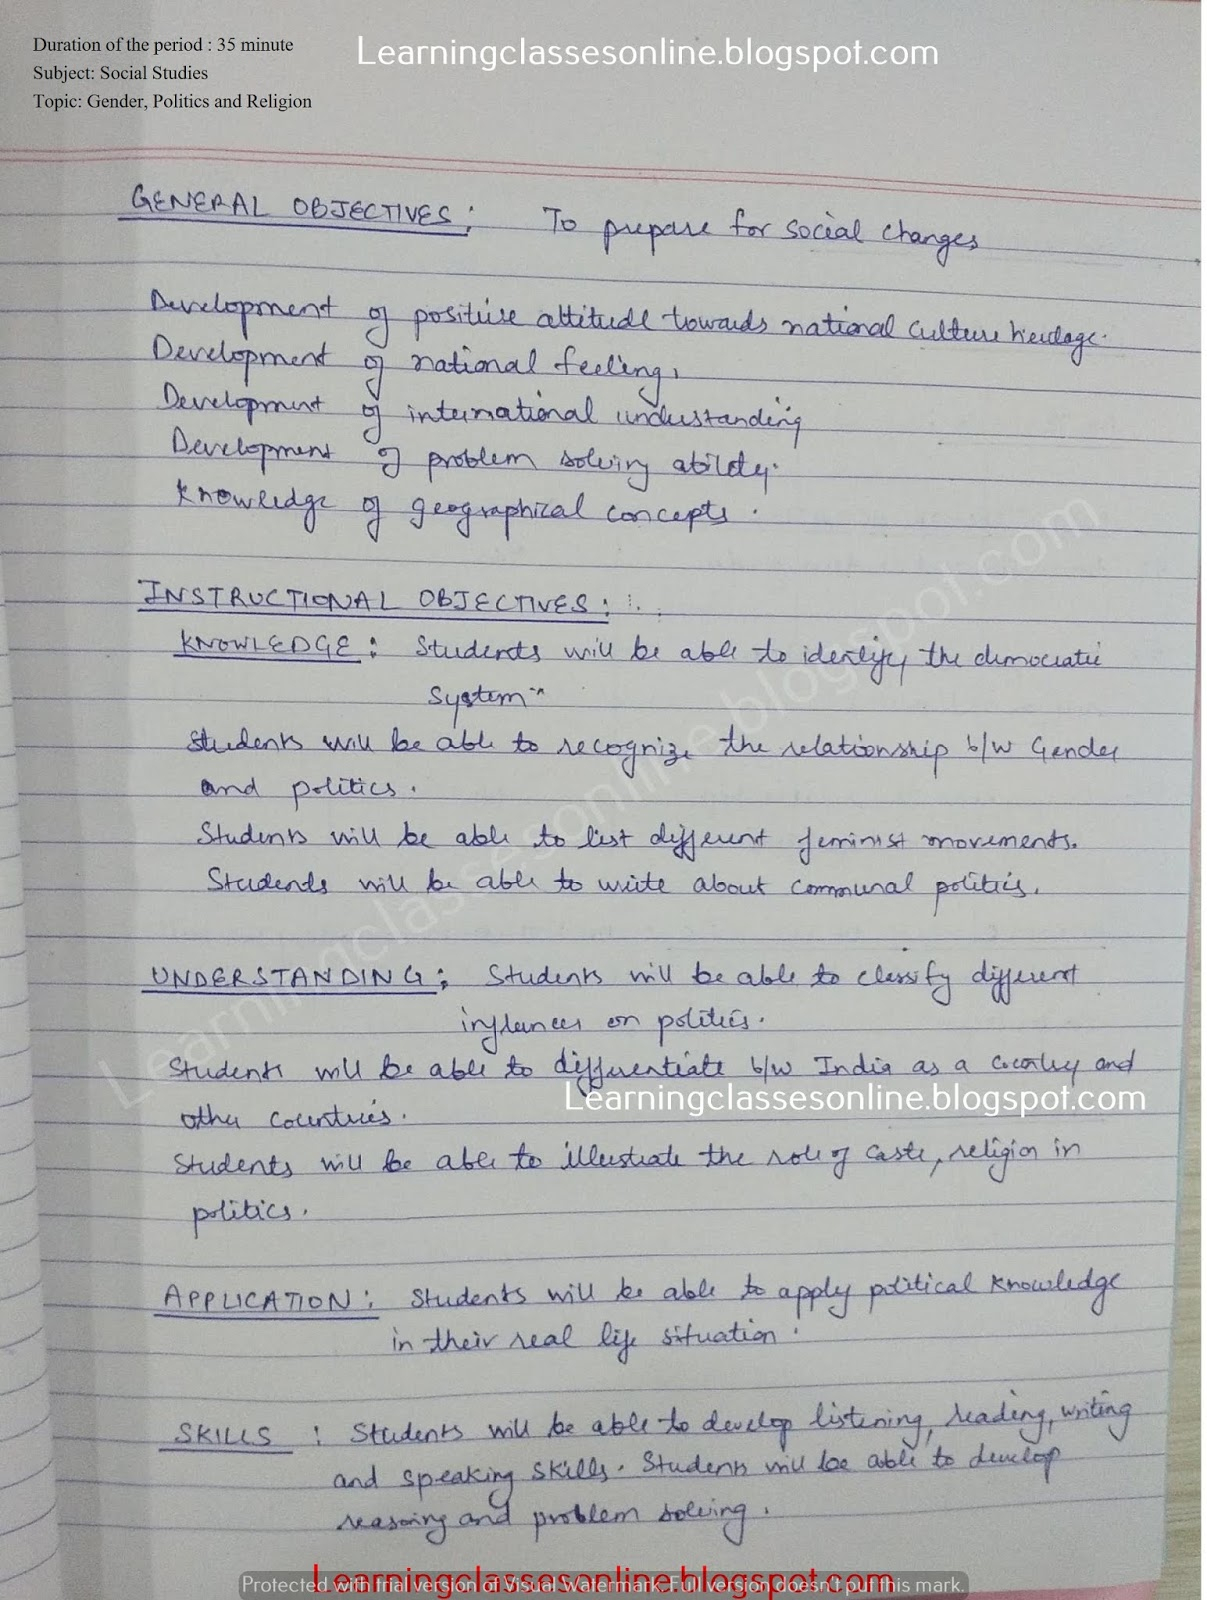 Duration of the period : 35 minute
Subject: Social Studies
Topic: Gender, Politics and Religion
Learningclassesonline.blogspot.com
GENERAL OBJECTIVES: To prepare for social changes
Development of positive attitude towards national culture heritage.
Development of national feeling.
Development of international understanding
Development of problem solving ability.
Knowledge of geographical concepts.
INSTRUCTIONAL OBJECTIVES:
KNOWLEDGE: Students will be able to identify the democratic
System
Students will be able to recognize the relationship b/w Gender
and politics.
Students will be able to list different feminist movements.
Students will be able to write about communal politics.
UNDERSTANDING: Students will be able to classify different
influences on politics.
Students will be able to differentiate b/w India as a country and
Learningclassesonline.blogspot.com
other countries.
Students will be able to illustrate the role of caste, religion in
politics.
APPLICATION: Students will be able to apply political knowledge
in their real life situation.
SKILLS : Students will be able to develop listening, reading, writing
and speaking skills. Students will be able to develop
reasoning and problem solving.
Learningclassesonline.blogspot.com
Protected with trial version of Visual Watermark. Full version doesn't put this mark.
Learningclassesonline.blogspot.com